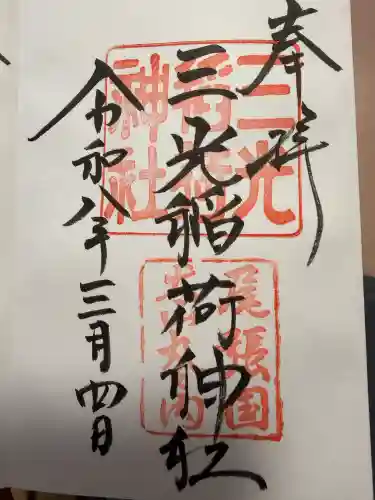 奉拝
三光稲荷神社
令和八年三月四日
三光
稲荷
神社
尾張国